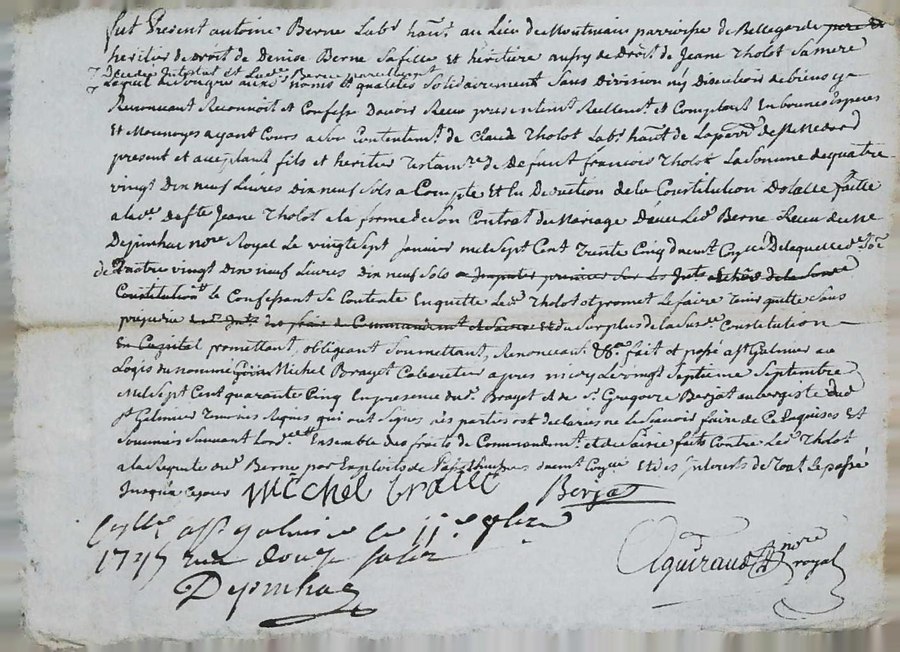 fut Present antoine Berne Labr hant au Lieu de Montmain parroisse de Bellegarde
heritier de droit de Denise Berne Sa fille et heritiere aussy de Droit de Jeane Tholot Sa mere
Decedee Intestat et Led. Berne
Lequel de Son gré aux noms et qualités Solidairement Sans Division ny Discution de biens ce
Renoncant Reconnoit et Confesse Davoir Receu presentemt Reellemt et Comptant En bonnes Especes
et Monnoyes ayant Cours a Son Contentemt de Claud Tholot Labr hant de La parr de St Medard
present et acceptant fils et heritier Testamre de defunt françois Tholot La Somme de quatre
vingt Dix neuf Livres Dix neuf Sols a Compte et En Deduction de la Constitution Dotalle faitte
a lad defte Jeane Tholot a la forme de Son Contrat de Mariage avec Led Berne Receu de Me
Depinhac nore Royal Le vingt Sept janvier mil Sept Cent Trente Cinq De laquelle de
de Quatre vingt Dix neuf Livres Dix neuf Sols
Constitution le Confessant Se Contente En quitte Led Tholot et promet Le faire Tenir quitte Sans
prejudice et du Surplus de la Sus Constitution
En Capital promettant, obligeant Soumettant, Renoncant &ca fait et passé a St Galmier au
Logis du nommé Michel Brayet Cabaretier apres midy Le vingt Septieme Septembre
Mil Sept Cent quarante Cinq En presence du Sr Brayet et de Sr Gregoire Berjat aubergiste dud
St Galmier Temoins Requis qui ont Signé les parties ont declaré ne Le Scavoir faire de Ce Enquises Et
Sommés Suivant Lord Ensemble des fraits de Commandemt et de Saisie faits Contre Led Tholot
a la Requete dud Berne par Exploits de Et des Interests de Tout Le passé
Jusqua Ce jour Michel braiet Berjat
a St galmier le 11e
1745 douze
Depinhac
Aguiraud nore royal